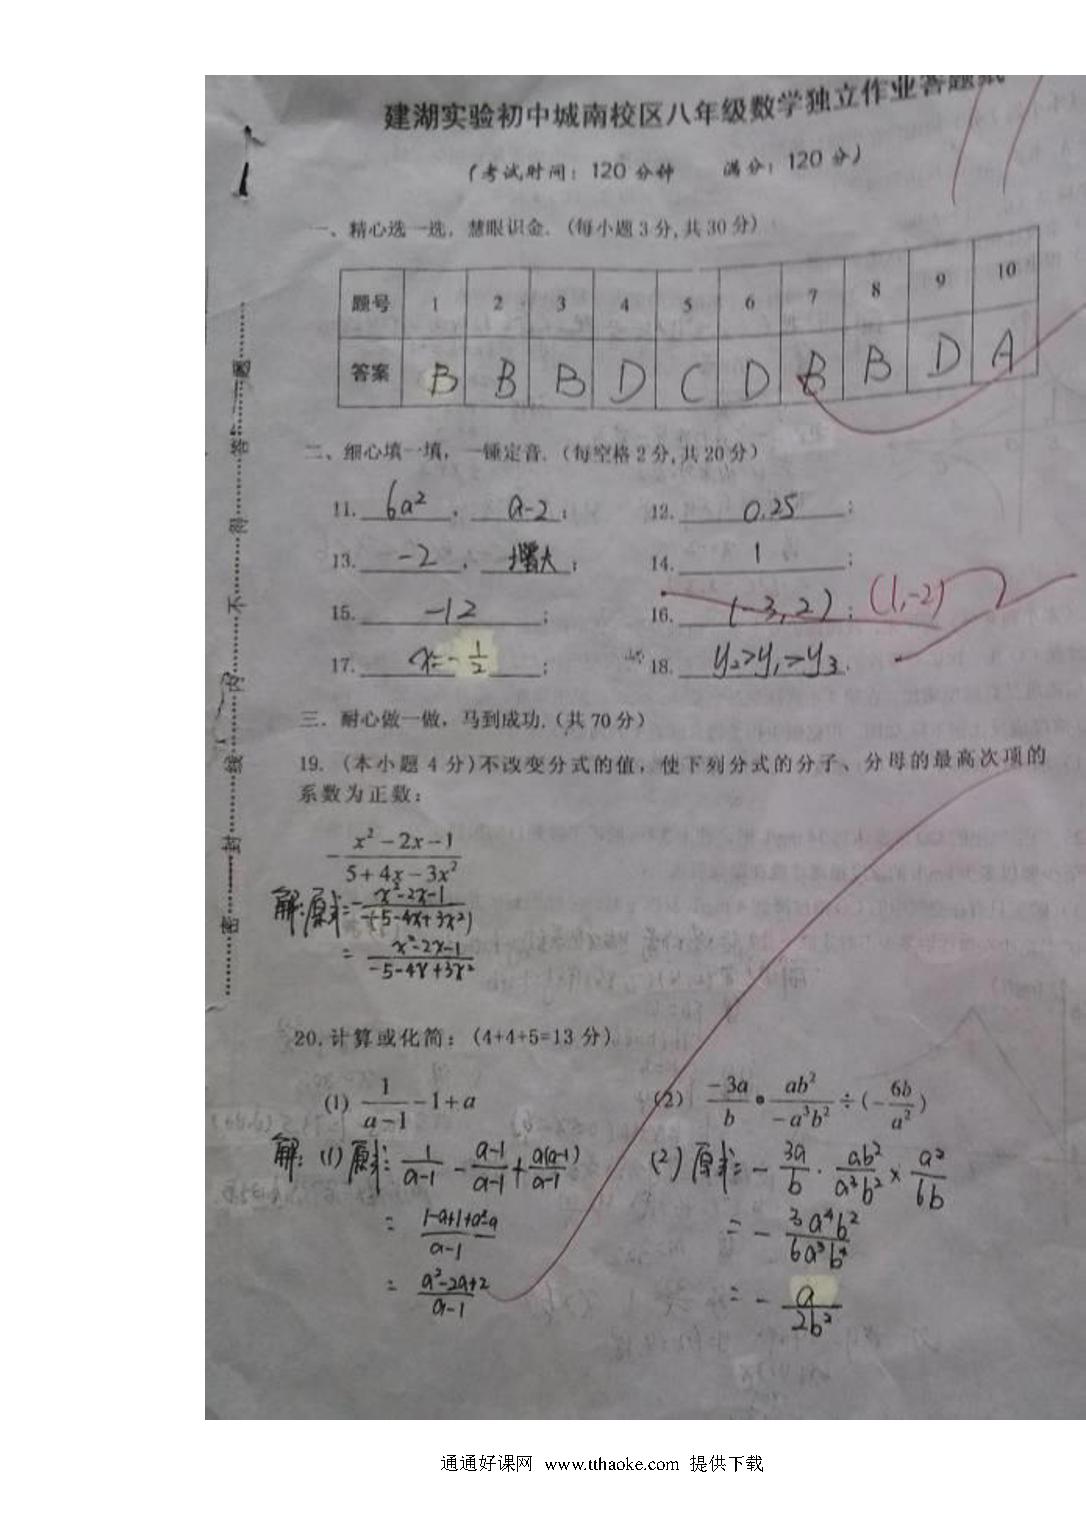 建湖实验初中城南校区八年级数学独立作业答题纸
(考试时间：120分钟 满分：120分)
一、精心选一选，慧眼识金.(每小题3分,共30分)
题号 1 2 3 4 5 6 7 8 9 10
答案 B B B D C D B B D A
二、细心填一填，一锤定音.(每空格2分,共20分)
11. 6a² ， a-2 ； 12. 0.25 ；
13. -2 ， 增大 ； 14. 1 ；
15. -12 ； 16. (-3,2) ； (1,-2)
17. x=-1/2 ； 18. y₂>y₁>y₃.
三．耐心做一做，马到成功.(共70分)
19.(本小题4分)不改变分式的值，使下列分式的分子、分母的最高次项的
系数为正数：
-(x²-2x-1)/(5+4x-3x²)
解:原式=-(x²-2x-1)/(-(-5-4x+3x²))
=(x²-2x-1)/(-5-4x+3x²)
20.计算或化简：(4+4+5=13分)
(1) 1/(a-1) -1+a (2) (-3a)/b • ab²/(-a³b²) ÷(-6b/a²)
解：(1)原式=1/(a-1) - (a-1)/(a-1) + a(a-1)/(a-1) (2)原式=-3a/b · ab²/(a³b²) × a²/(6b)
=(1-a+1+a²-a)/(a-1) =-3a⁴b²/(6a³b⁴)
=(a²-2a+2)/(a-1) =-a/(2b²)
密 封 线 内 不 得 答 题
通通好课网 www.tthaoke.com 提供下载